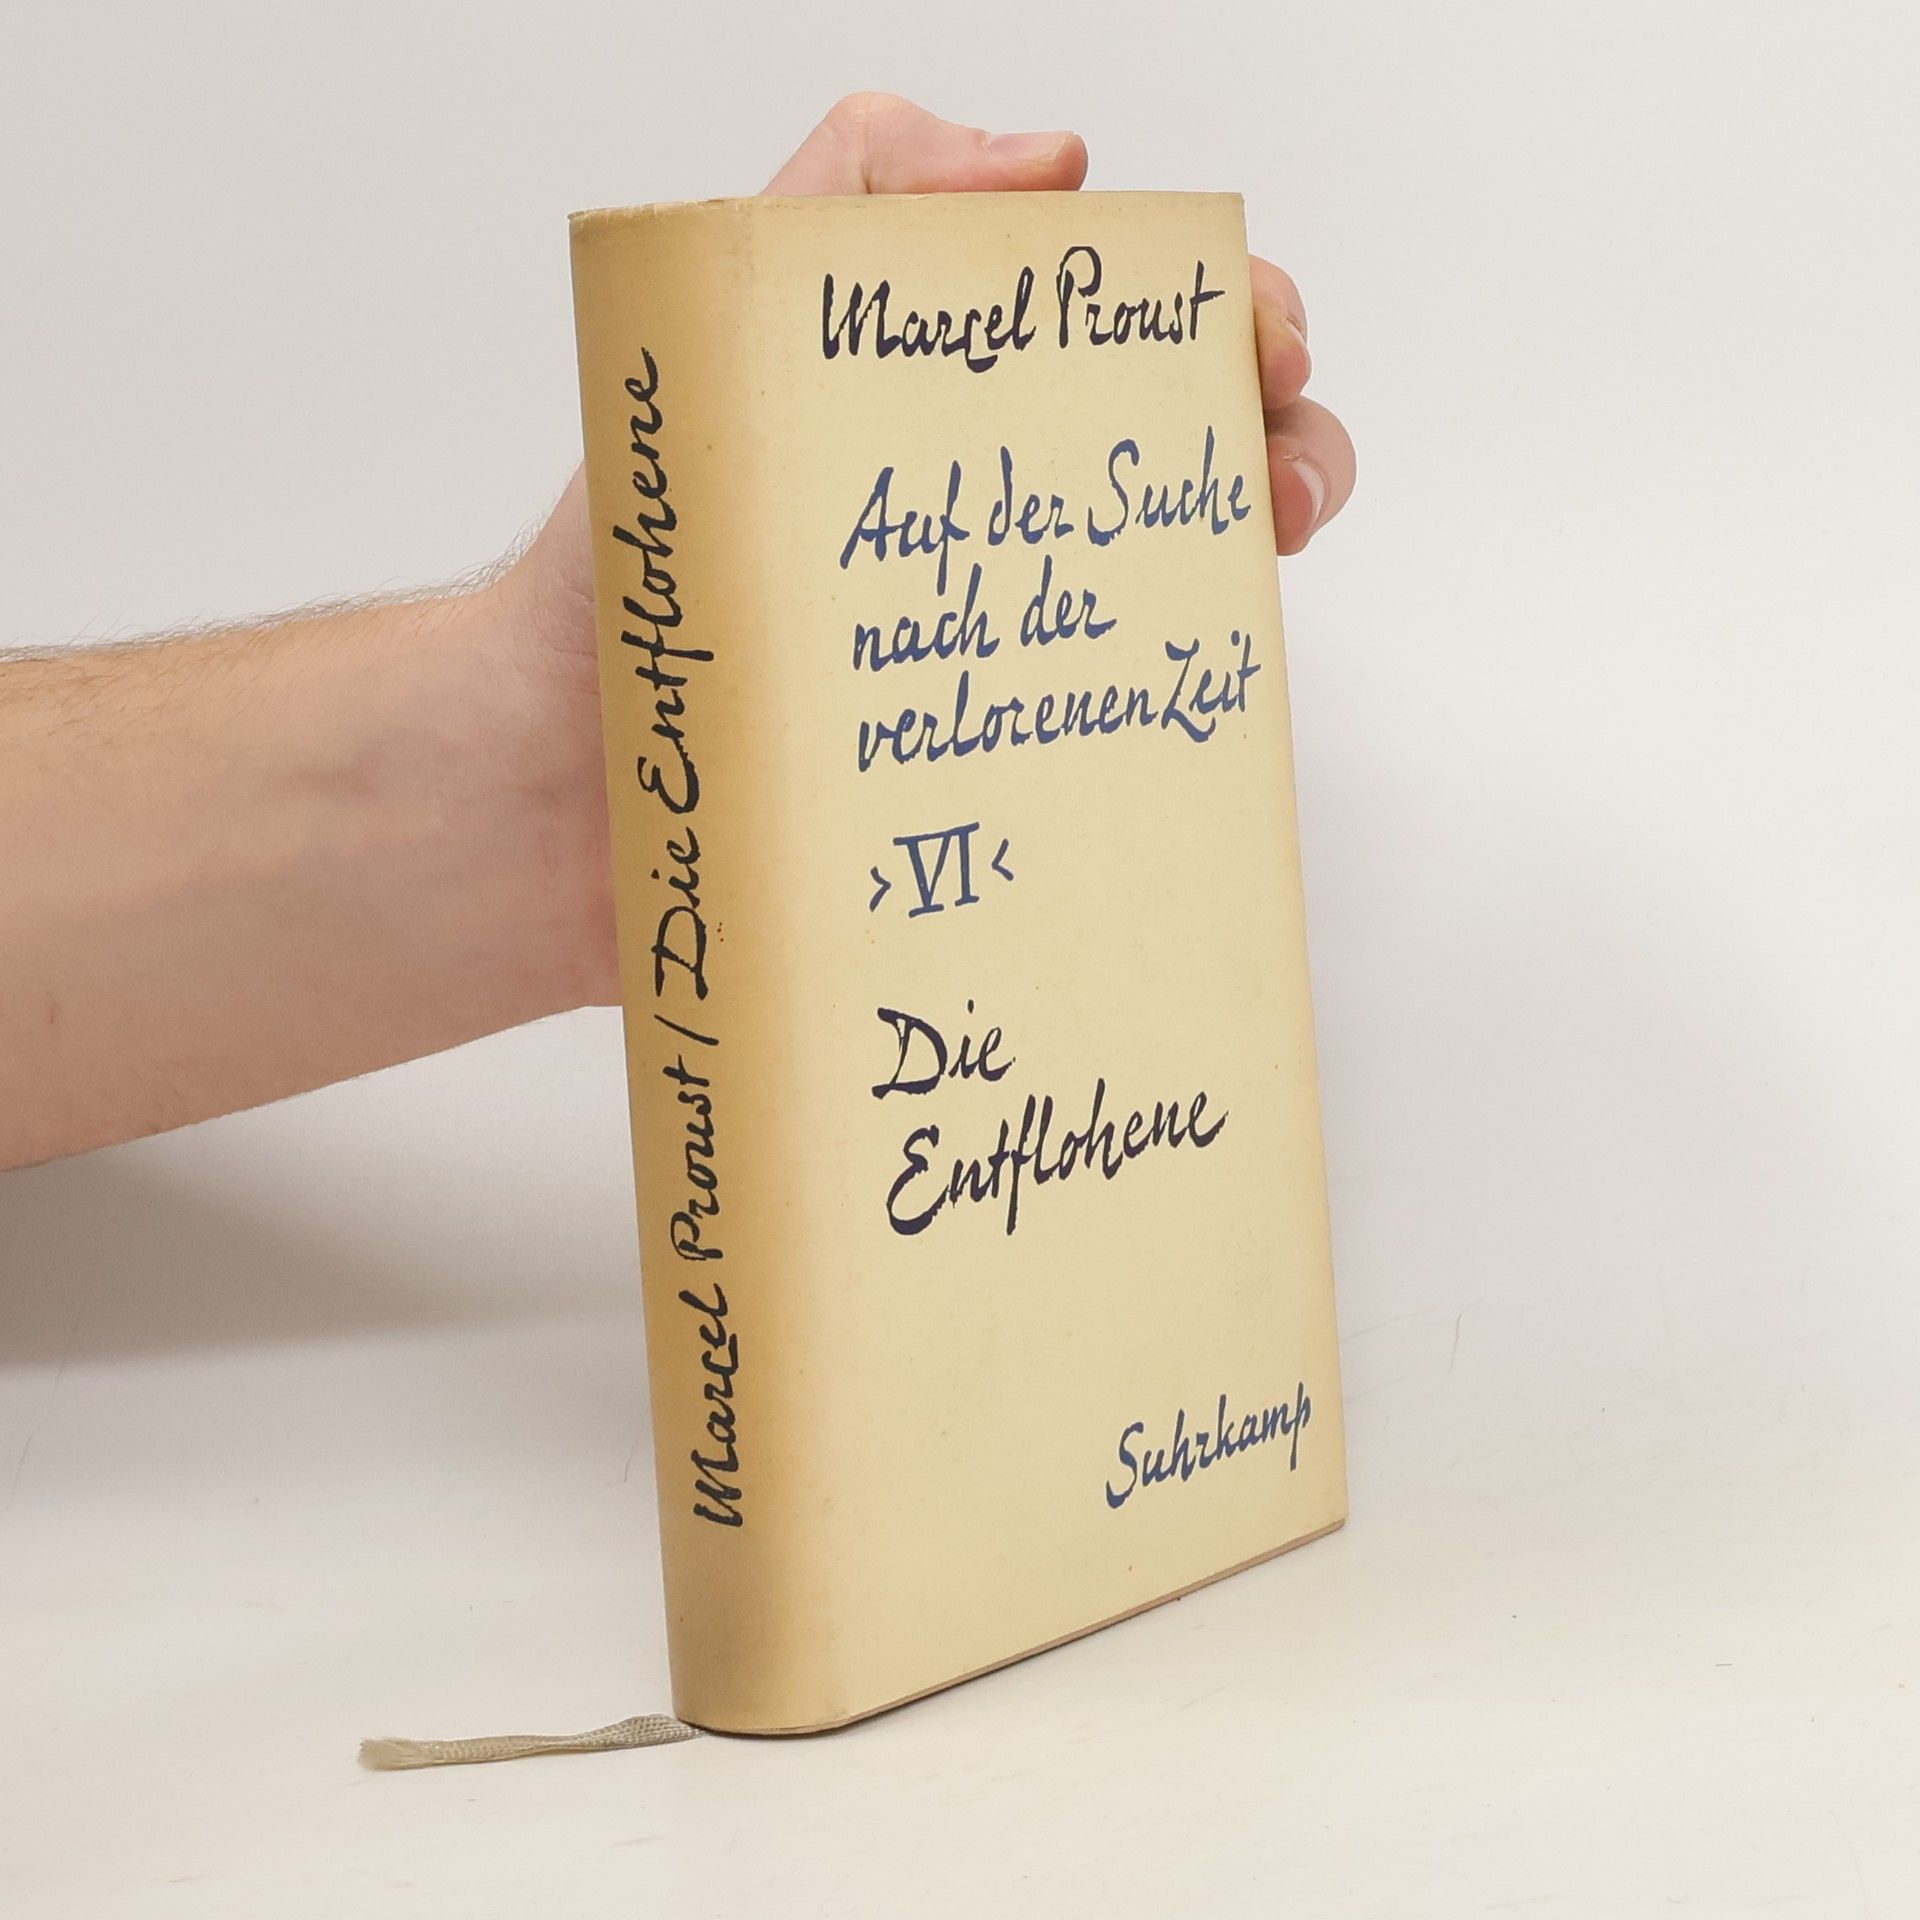 Marcel Proust / Die Entflohene
Marcel Proust
Auf der Suche
nach der
verlorenen Zeit
›VI‹
Die
Entflohene
Suhrkamp